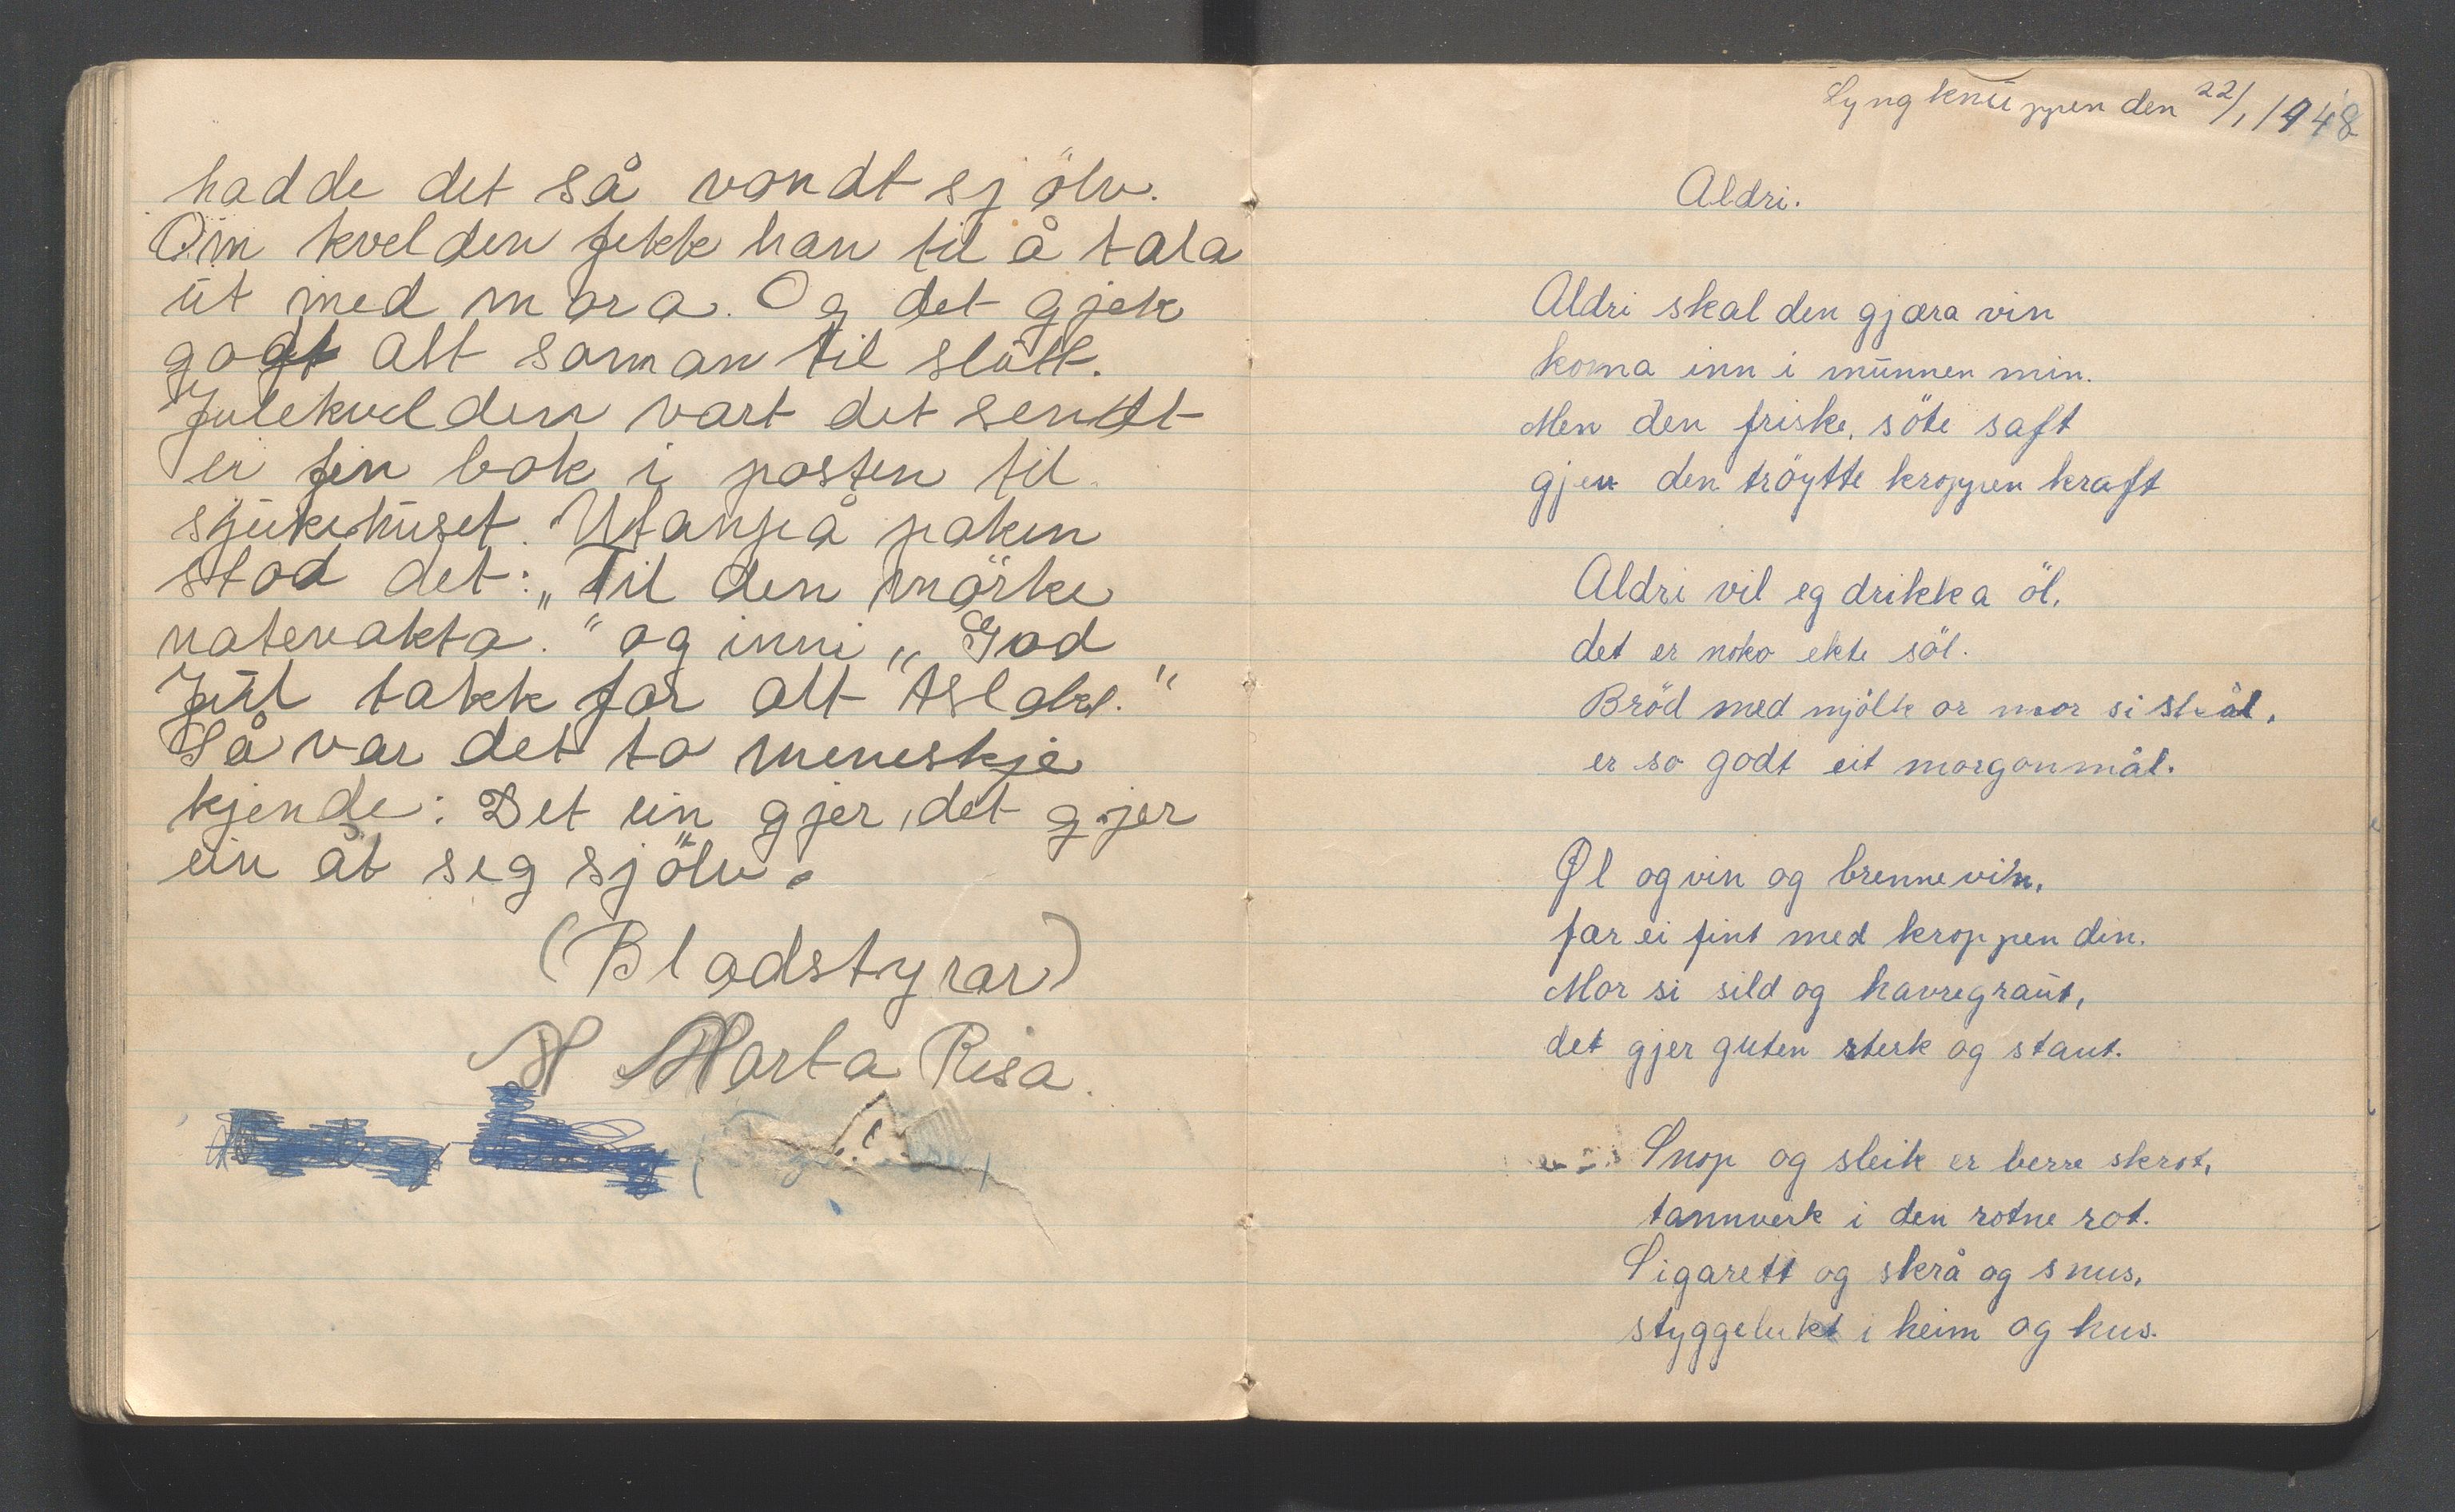 hadde det så vondt sjölv.
Om kvelden fekk han til å tala
ut med mora. Og det gjek
godt alt saman til slutt.
Julekvelden vart det sendt
ei fin bok i posten til
sjukehuset. Utanpå paken
stod det: „Til den mörke
natevakta." og inni „God
Jul takk for alt Aslak."
Så var det to meneskje
kjende: Det ein gjer, det gjer
ein åt seg sjölv.
(Bladstyrar)
M Marta Risa.
Lyngknuppen den 22/1 1948
Aldri.
Aldri skal den gjæra vin
koma inn i munnen min.
Men den friske, söte saft
gjev den tröytte kroppen kraft
Aldri vil eg drikka öl,
det er noko ekte söl.
Bröd med mjölk or mor si skål,
er so godt eit morgonmål.
Øl og vin og brennevin,
far ei fint med kroppen din.
Mor si sild og havregraut,
det gjer guten sterk og staut.
Snop og sleik er berre skrot,
tannverk i den rotne rot.
Sigarett og skrå og snus,
styggelukt i heim og hus.